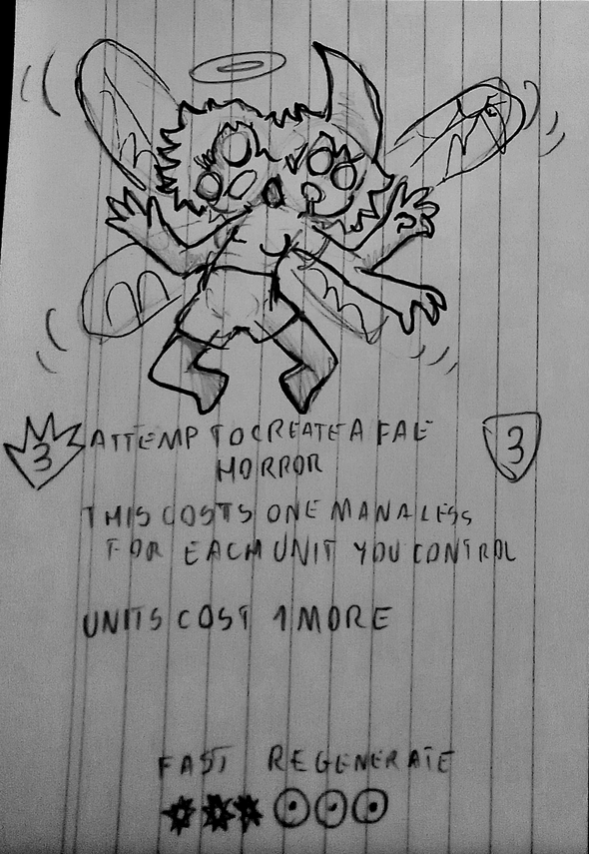 3 ATTEMP TO CREATE A FAE 3
HORROR
THIS COSTS ONE MANA LESS
FOR EACH UNIT YOU CONTROL
UNITS COST 1 MORE
FAST REGENERATE